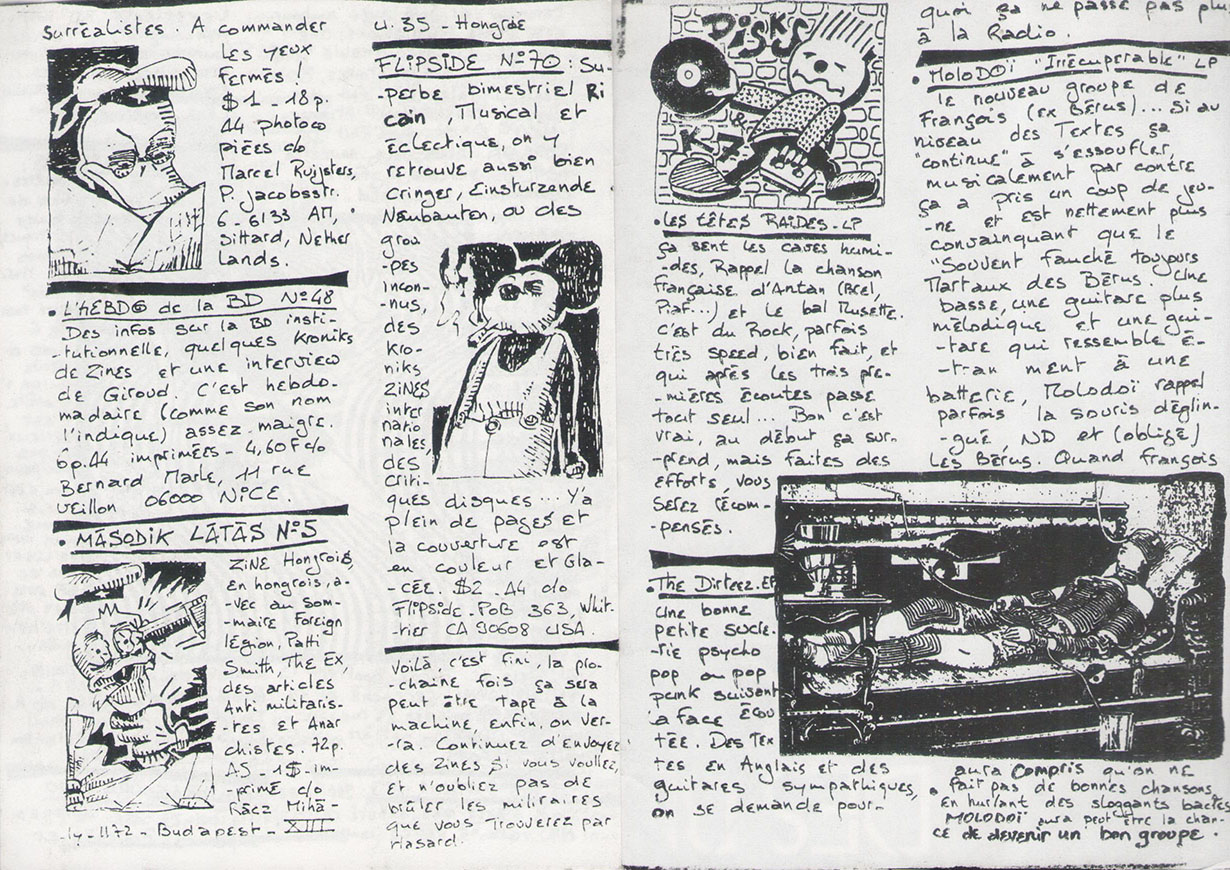 surréalistes. A commander
les yeux
fermés !
$1 - 18p.
A4 photoco
piées c/o
Marcel Ruijsters,
P. Jacobsstr.
6 - 6133 AM,
Sittard, Nether
lands.
• L'HEBDO de la BD N°48
Des infos sur la BD insti-
-tutionnelle, quelques Kroniks
de Zines et une interview
de Giroud. C'est hebdo-
madaire (comme son nom
l'indique) assez maigre.
6p. A4 imprimées - 4,60F c/o
Bernard Marle, 11 rue
Veillon 06000 NICE
• MASODIK LATAS N°5
ZINE Hongrois,
en hongrois, a-
-vec au som-
-maire Foreign
légion, Patti
Smith, The Ex,
des articles
Anti militaris-
-tes et Anar
chistes. 72p.
A5 - 1$ - im-
-primé c/o
Rácz Mihá-
-ly - 1172 - Budapest - XIII
u. 35 - Hongrie
FLIPSIDE N°70 : Su-
-perbe bimestriel Ri
cain, Musical et
éclectique, on y
retrouve aussi bien
Cringer, Einsturzende
Neubauten, ou des
grou
-pes
incon-
-nus,
des
Kro-
niks
ZINES
inter
natio
nales,
des
criti-
ques disques... Y'a
plein de pages et
la couverture est
en couleur et Gla-
-cée. $2. A4 c/o
FLIPSIDE. PoB 363, Whit-
-tier CA 90608 USA.
Voilà, c'est fini, la pro-
-chaine fois ça sera
peut être tapé à la
machine, enfin, on ver-
-ra. Continuez d'envoyez
des Zines si vous voullez,
et n'oubliez pas de
brûler les militaires
que vous trouverez par
hasard.
DISKS
& K7
• Les TÊTES RAIDES - LP
ça sent les caves humi-
-des, Rappel la chanson
française d'Antan (Brel,
Piaf...) et le bal Musette.
c'est du Rock, parfois
très speed, bien fait, et
qui après les trois pre-
-mières écoutes passe
tout seul... Bon c'est
vrai, au début ça sur-
-prend, mais faites des
efforts, vous
serez récom-
-pensés.
• The Dirteez. EP
Une bonne
petite sucre-
-rie psycho
pop ou pop
punk suivant
la face écou
tée. Des Tex
tes en Anglais et des
guitares sympathiques,
on se demande pour-
quoi ça ne passe pas plus
à la Radio.
• MOLODOÏ "Irrécuperable" LP
le nouveau groupe de
François (ex Bérus)... Si au
niveau des Textes ça
"continue" à s'essoufler,
musicalement par contre
ça a pris un coup de jeu-
-ne et est nettement plus
convainquant que le
"Souvent fauché toujours
Martaux des Bérus. Une
basse, une guitare plus
mélodique et une gui-
-tare qui ressemble é-
-tran ment à une
batterie, Molodoï rappel
parfois la souris déglin-
-gué, ND et (obligé)
les Bérus. Quand François
aura compris qu'on ne
fait pas de bonnes chansons
en hurlant des sloggants bactes
MOLODOÏ aura peut être la chan-
ce de devenir un bon groupe.